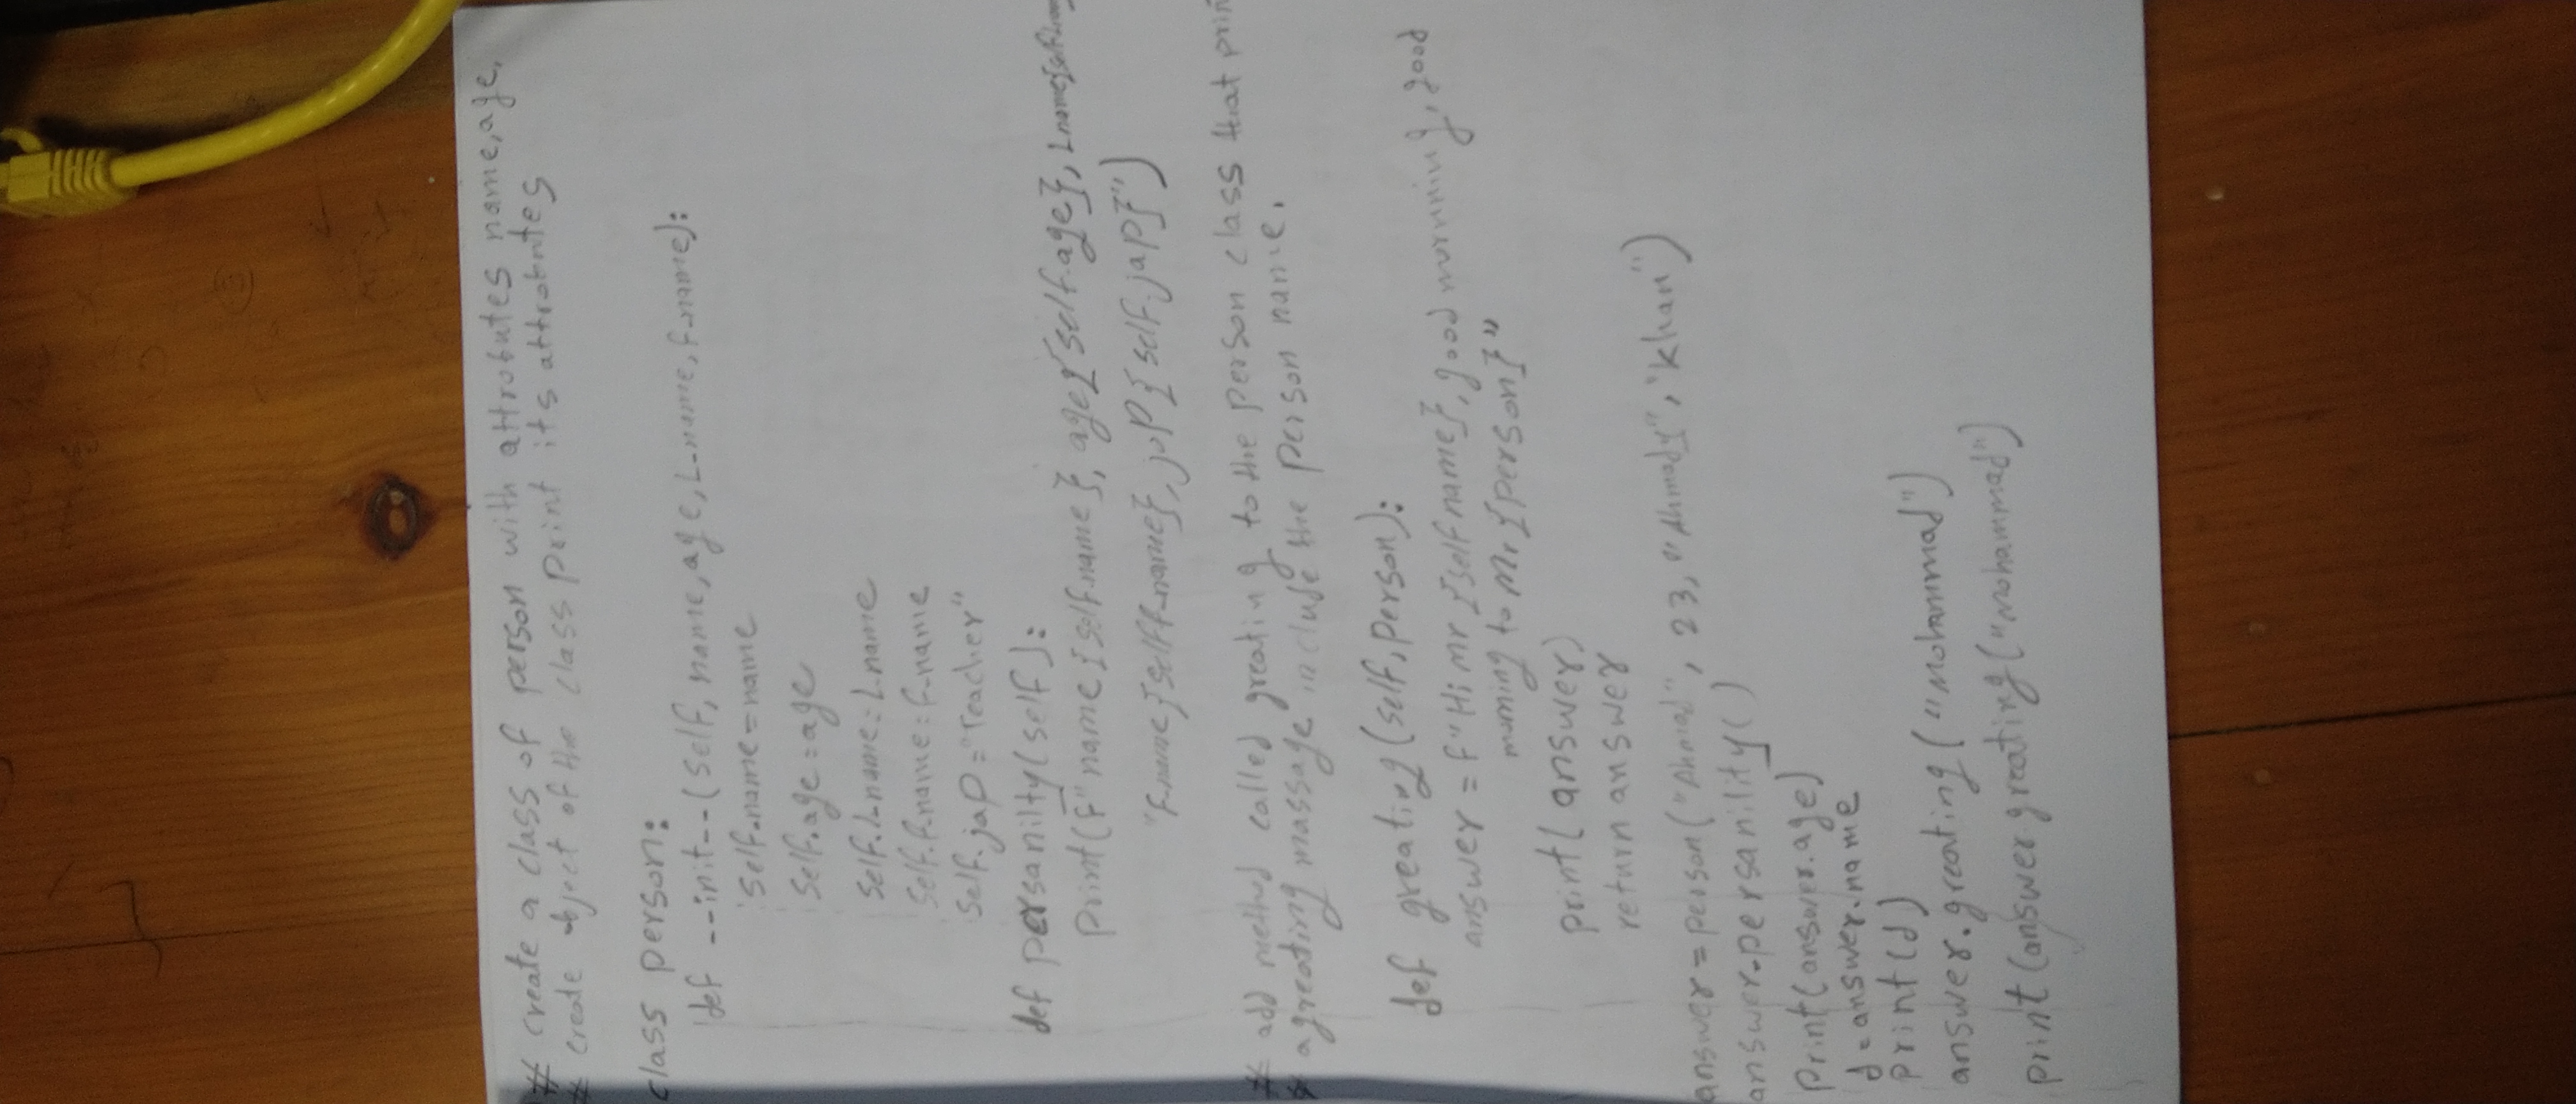 # create a class of person with attrobutes name, age,
# create object of the class print its attrobutes
class person:
def --init--(self, name, age, L-name, F-name):
self.name=name
self.age=age
self.L-name=L-name
self.F-name=F-name
self.jap="Teacher"
def persanilty(self):
print(f"name{self.name}, age{self.age}, Lname{self.Lname
"F.name{self.F-name}, jop{self.jap}")
# add methud called greating to the person class that prin
# a greating massage include the person name.
def greating(self, person):
answer = f"Hi mr {self name}, good murnning, good
murning to Mr {person}"
print(answer)
return answer
answer=person("Ahmad", 23, "Ahmady", "khan")
answer.persanility()
print(answer.age)
d=answer.name
print(d)
answer.greating("Mohammad")
print(answer.greating("Mohammad")